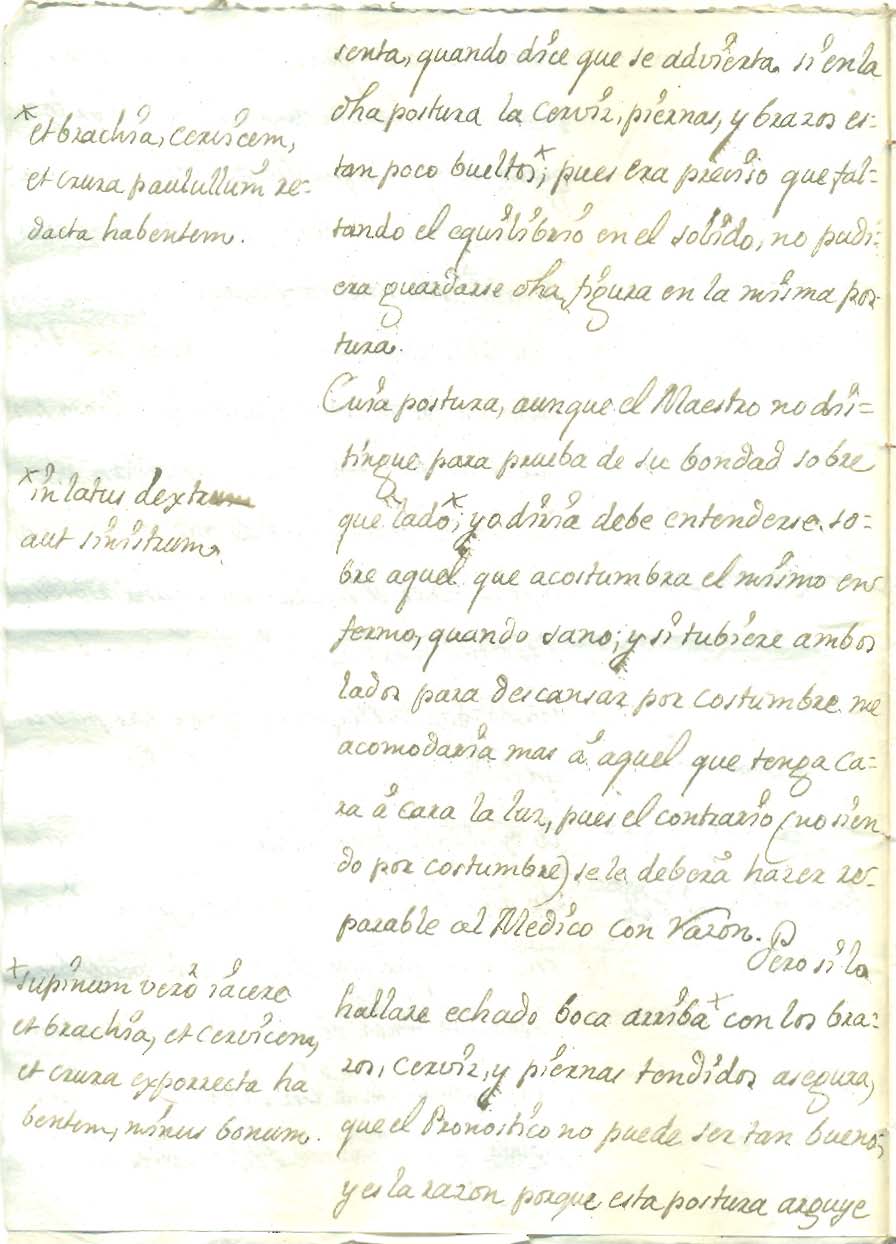 senta, quando dice que se advierta si en la
dha postura la Cerviz, piernas, y brazos es=
tan poco bueltos; pues era preciso que fal=
tando el equilibrio en el solido, no pudi=
era guardarse dha figura en la misma pos
tura.
Cuia postura, aunque el Maestro no dis=
tingue para prueba de su bondad sobre
que lado; yo diria debe entenderse so=
bre aquel que acostumbra el mismo en
fermo, quando sano; y si tubiere ambos
lados para descansar por costumbre me
acomodaria mas á aquel que tenga ca=
ra á cara la luz, pues el contrario (no sien
do por costumbre) se le deberá hazer re=
parable al Medico con razon. Pero si lo
hallare echado boca arriba x con los bra=
zos, cerviz, y piernas tendidos asegura,
que el Pronostico no puede ser tan bueno;
y es la razon porque esta postura arguye
x et brachia, cervicem,
et crura paulullum re=
dacta habentem.
x in latus dextrum
aut sinistrum.
x supinum veró iácere
et brachia, et cervicem,
et crura exporrecta ha
bentem, minus bonum.